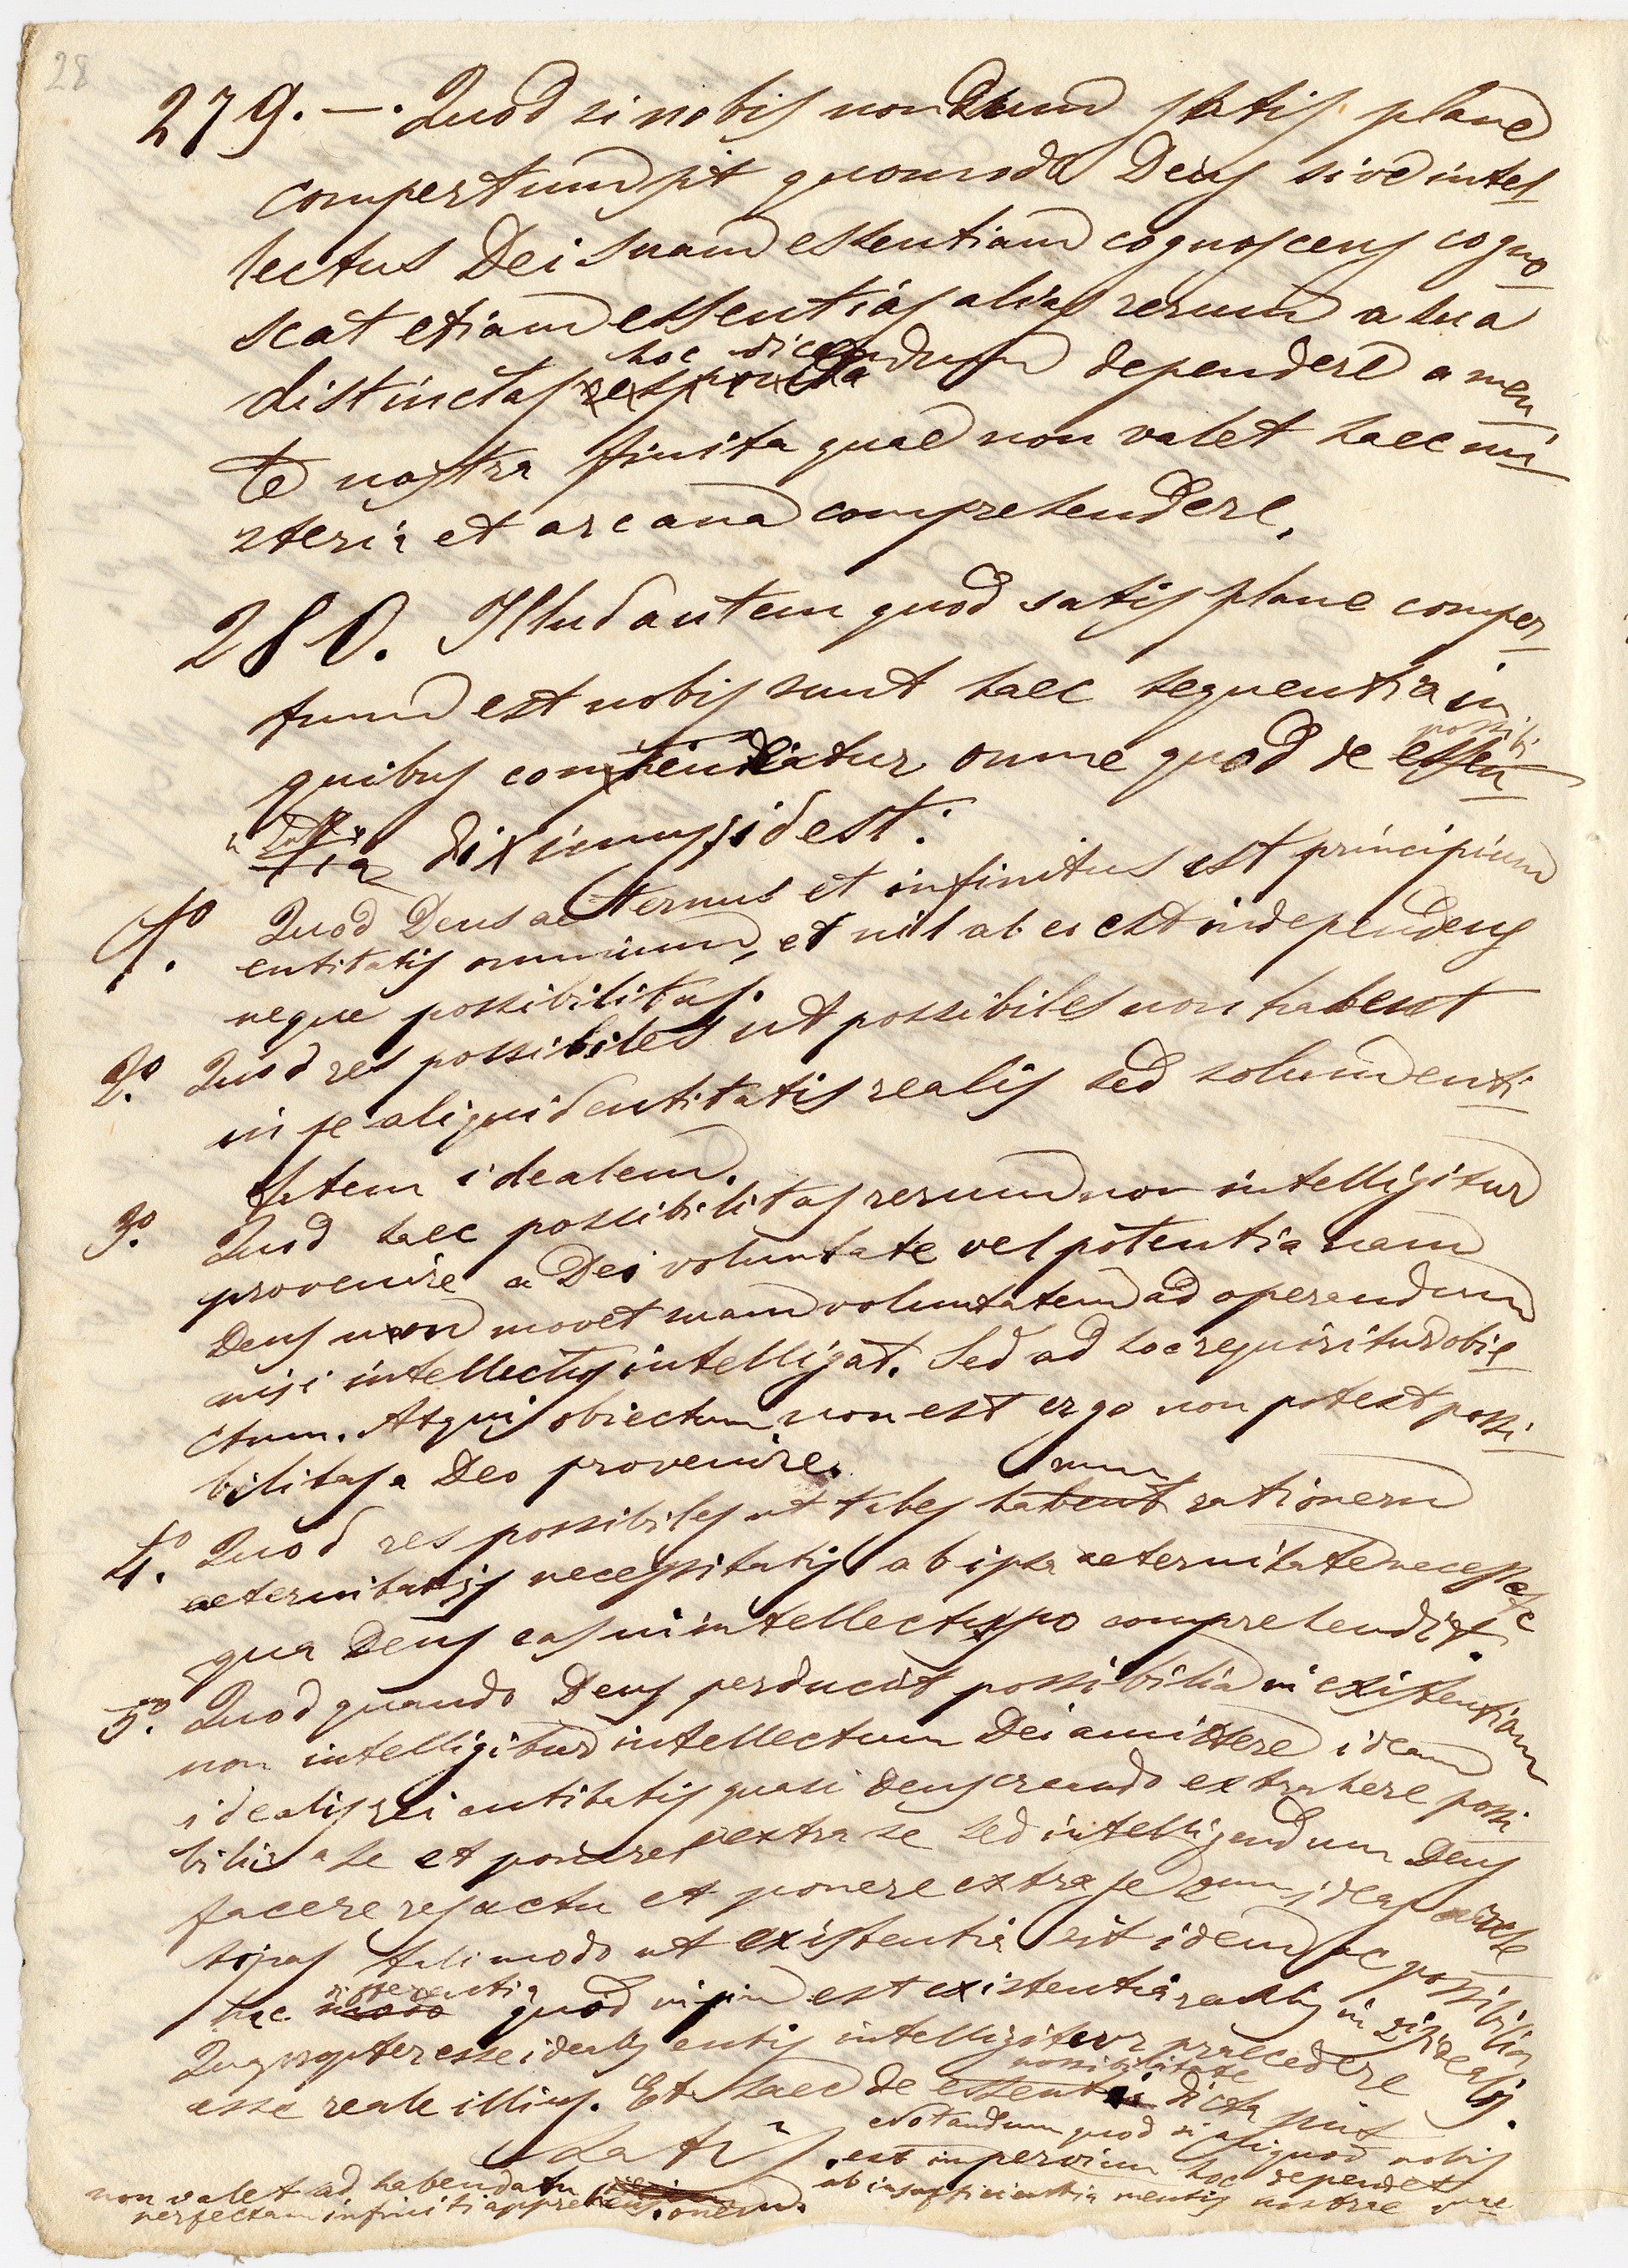 28
279. — . Quod si nobis nondum satis plane
compertum sit quomodo Deus sive intel
lectus Dei suam essentiam cognoscens cogno
scat etiam essentias alias rerum a sua
hoc dicen
distinctas dum dependere a men
te nostra finita quae non valet haec mi
steria et arcana comprehendere.
280. Illud autem quod satis plane comper
tum est nobis sunt haec sequentia in
possibi
quibus continetur omne quod de essen
tia diximus, id est:
1.o Quod Deus aeternus et infinitus est principium
entitatis omnium, et nil ab eo est independens
neque possibilitas.
2.o Quod res possibiles ut possibiles non habent
in se aliquid entitatis realis sed solum enti
tatem idealem.
3.o Quod haec possibilitas rerum non intelligitur
provenire a Dei voluntate vel potentia nam
Deus non movet suam voluntatem ad operandum
nisi intellectus intelligat. Sed ad hoc requiritur obie
ctum. Atqui obiectum non est ergo non potest possi
bilitas a Deo provenire.
sum
4.o Quod res possibiles ut tales habent rationem
aeternitatis necessitatis ab ipsa aeternitate necesse
qua Deus eas in intellectu suo comprehendit.
5.o Quod quando Deus perducit possibilia in existentiam
non intelligitur intellectum Dei amittere ideam
idealis rei entitatis quasi Deus creando extrahere possi
bilia a se et poneret extra se sed intelligendum Deus
facere res actu et ponere extra se cum ideas
tali modo ut existentia sit idem ac possibilia
differentia
hac modo quod in est existentia realis in idealis.
Quapropter esse idealis entis intelligitur praecedere
possibilitate
esse reale illius. Et haec de essentia dicta sint
satis. Notandum quod si aliquod nobis
est impervium hoc dependet
ab insufficientia mentis nostrae quae
non valet ad habendam
perfectam infiniti apprehensionem.